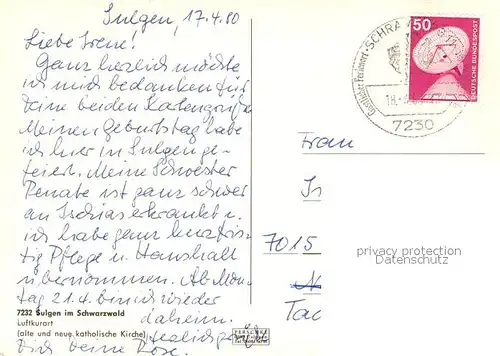 Sulgen, 17.4.80
Liebe Irene!
Ganz herzlich möchte
ich mich bedanken für
Deine beiden Kartengrüße
Meinen Geburtstag habe
ich hier in Sulgen ge-
feiert. Meine Schwester
Renate ist ganz schwer
an Ischias erkrankt u.
ich habe ganz kurzfris-
tig Pflege u. Haushalt
übernommen. Ab Mon-
tag 21.4. bin ich wieder
daheim.
Herzlich grüßt
Dich Deine Rose.
7232 Sulgen im Schwarzwald
Luftkurort
(alte und neue katholische Kirche)
SCHRA
Gastlicher Ferienort
18.
7230
50
DEUTSCHE BUNDESPOST
Frau
7015
privacy protection
Datenschutz